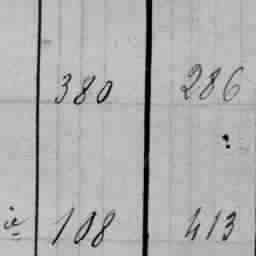 380 286
108 413